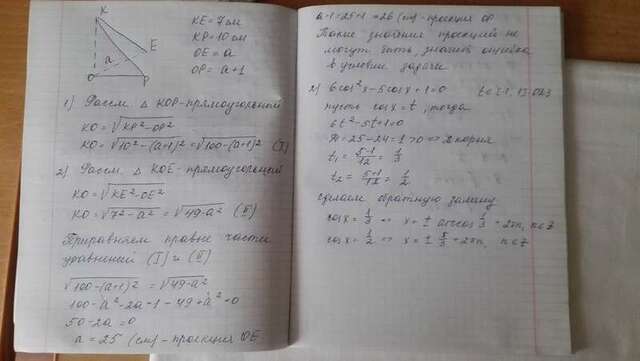 K
E
a
O
P
KE = 7 см
KP = 10 см
OE = a
OP = a+1
1) Рассм. △ KOP - прямоугольный
KO = √KP²-OP²
KO = √10²-(a+1)² = √100-(a+1)² (I)
2) Рассм. △ KOE - прямоугольный
KO = √KE²-OE²
KO = √7²-a² = √49-a² (II)
Приравняем правые части
уравнений (I) и (II)
√100-(a+1)² = √49-a²
100-a²-2a-1-49+a²=0
50-2a=0
a = 25 (см) - проекция OE
a+1=25+1=26 (см) - проекция OP
Такие значения проекций не
могут быть, значит ошибка
в условии задачи
2) 6cos²x-5cosx+1=0
пусть cosx=t, тогда
6t²-5t+1=0
D=25-24=1>0 => 2 корня
t₁ = 5-1/12 = 1/3
t₂ = 5+1/12 = 1/2
сделаем обратную замену
cosx = 1/3 => x = ± arccos 1/3 + 2πn, n∈Z
cosx = 1/2 => x = ±